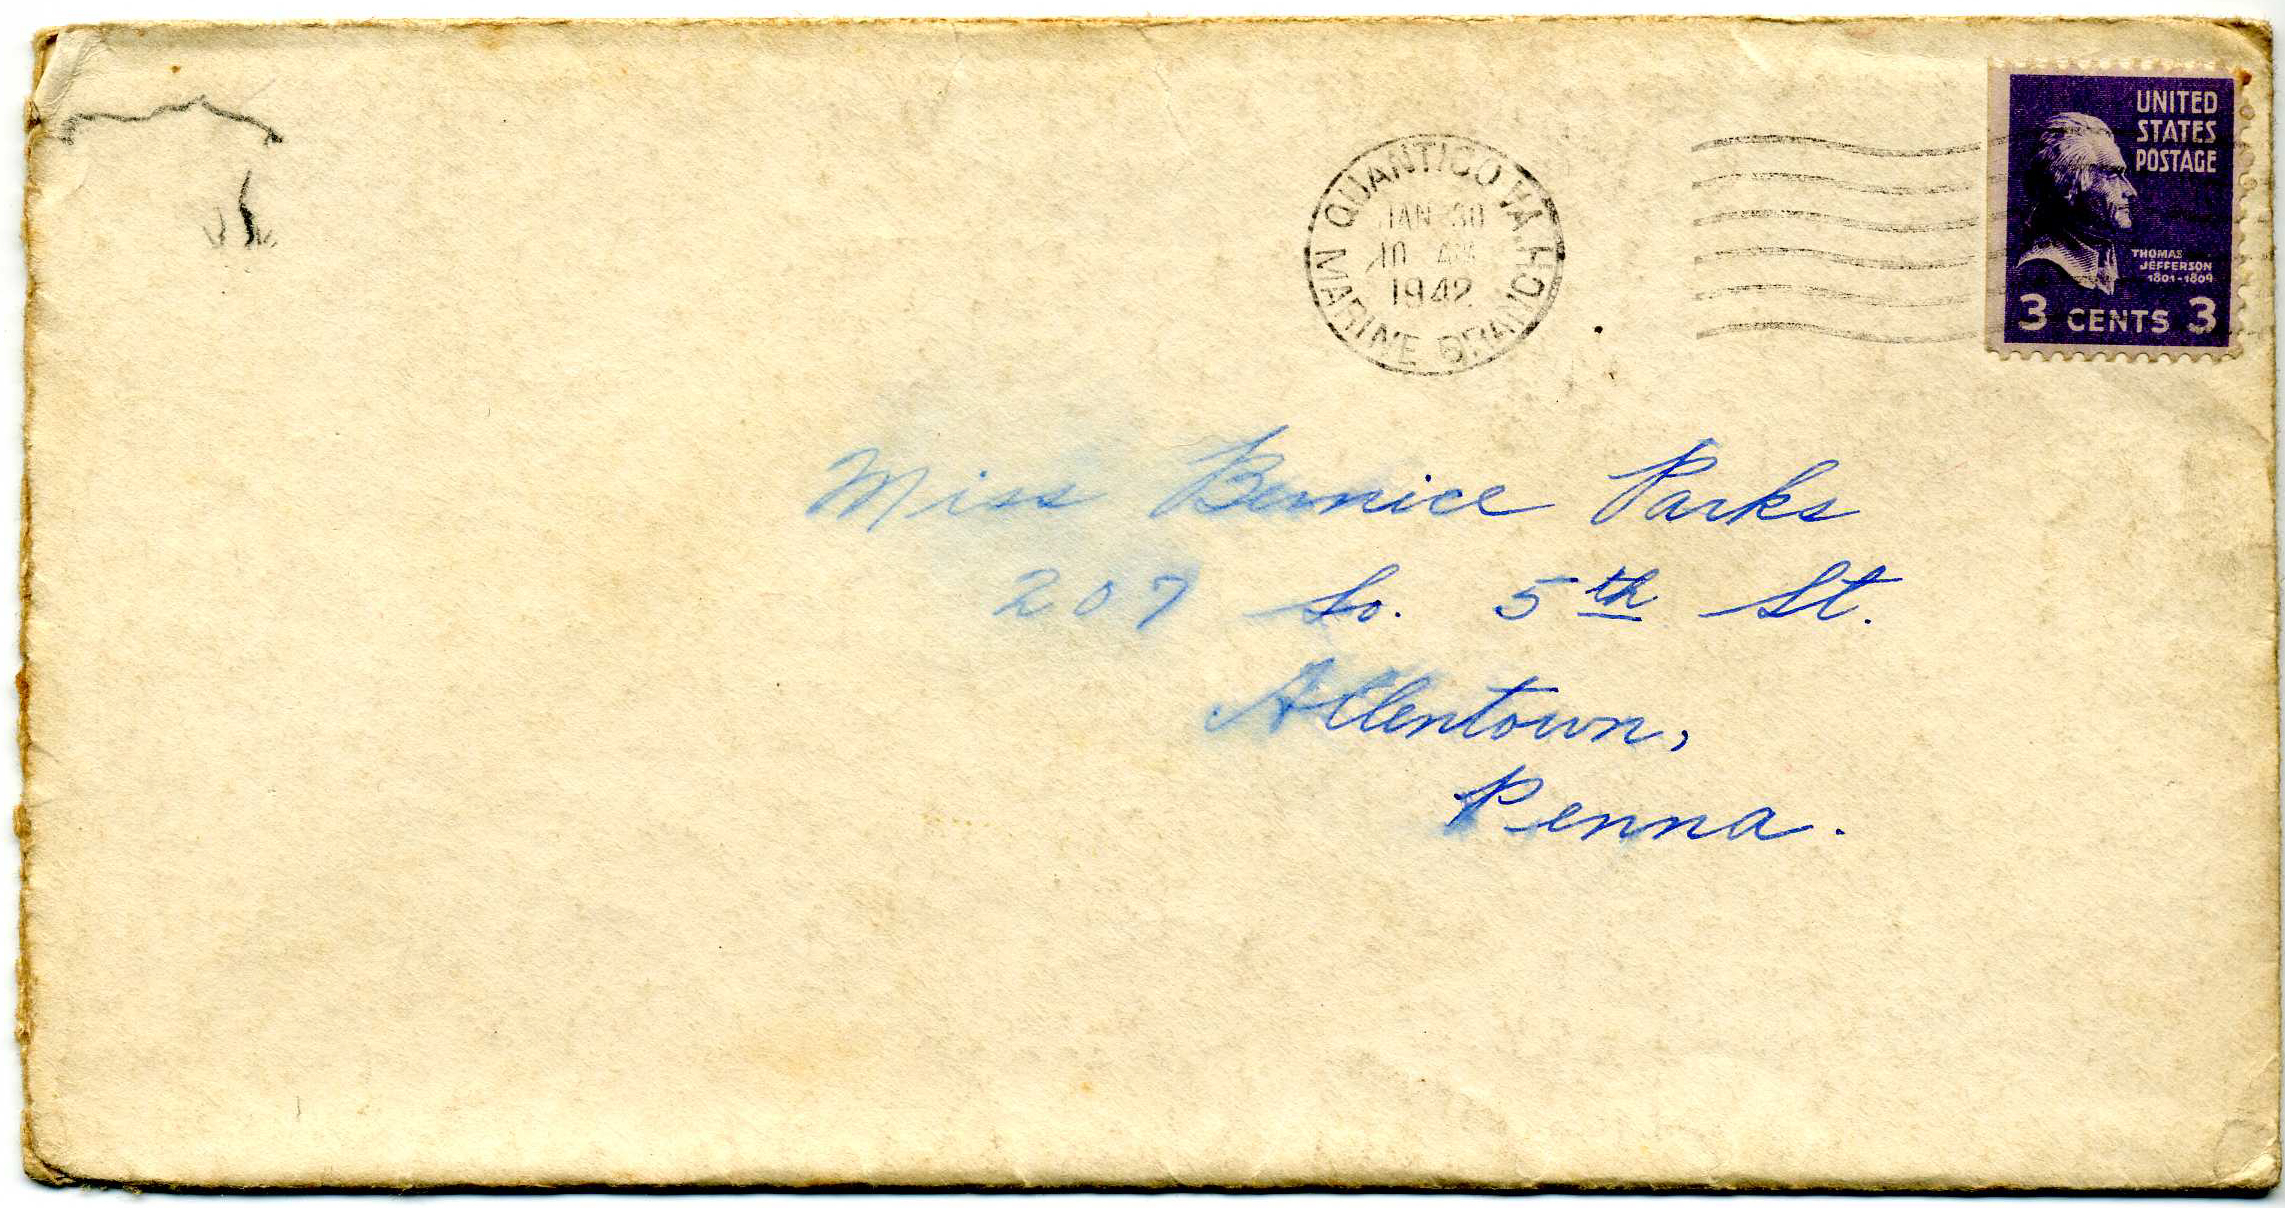 QUANTICO VA.
JAN 30
10 AM
1942
MARINE BRANCH
UNITED
STATES
POSTAGE
THOMAS
JEFFERSON
1801-1809
3 CENTS 3
Miss Bernice Parks
207 So. 5th St.
Allentown,
Penna.